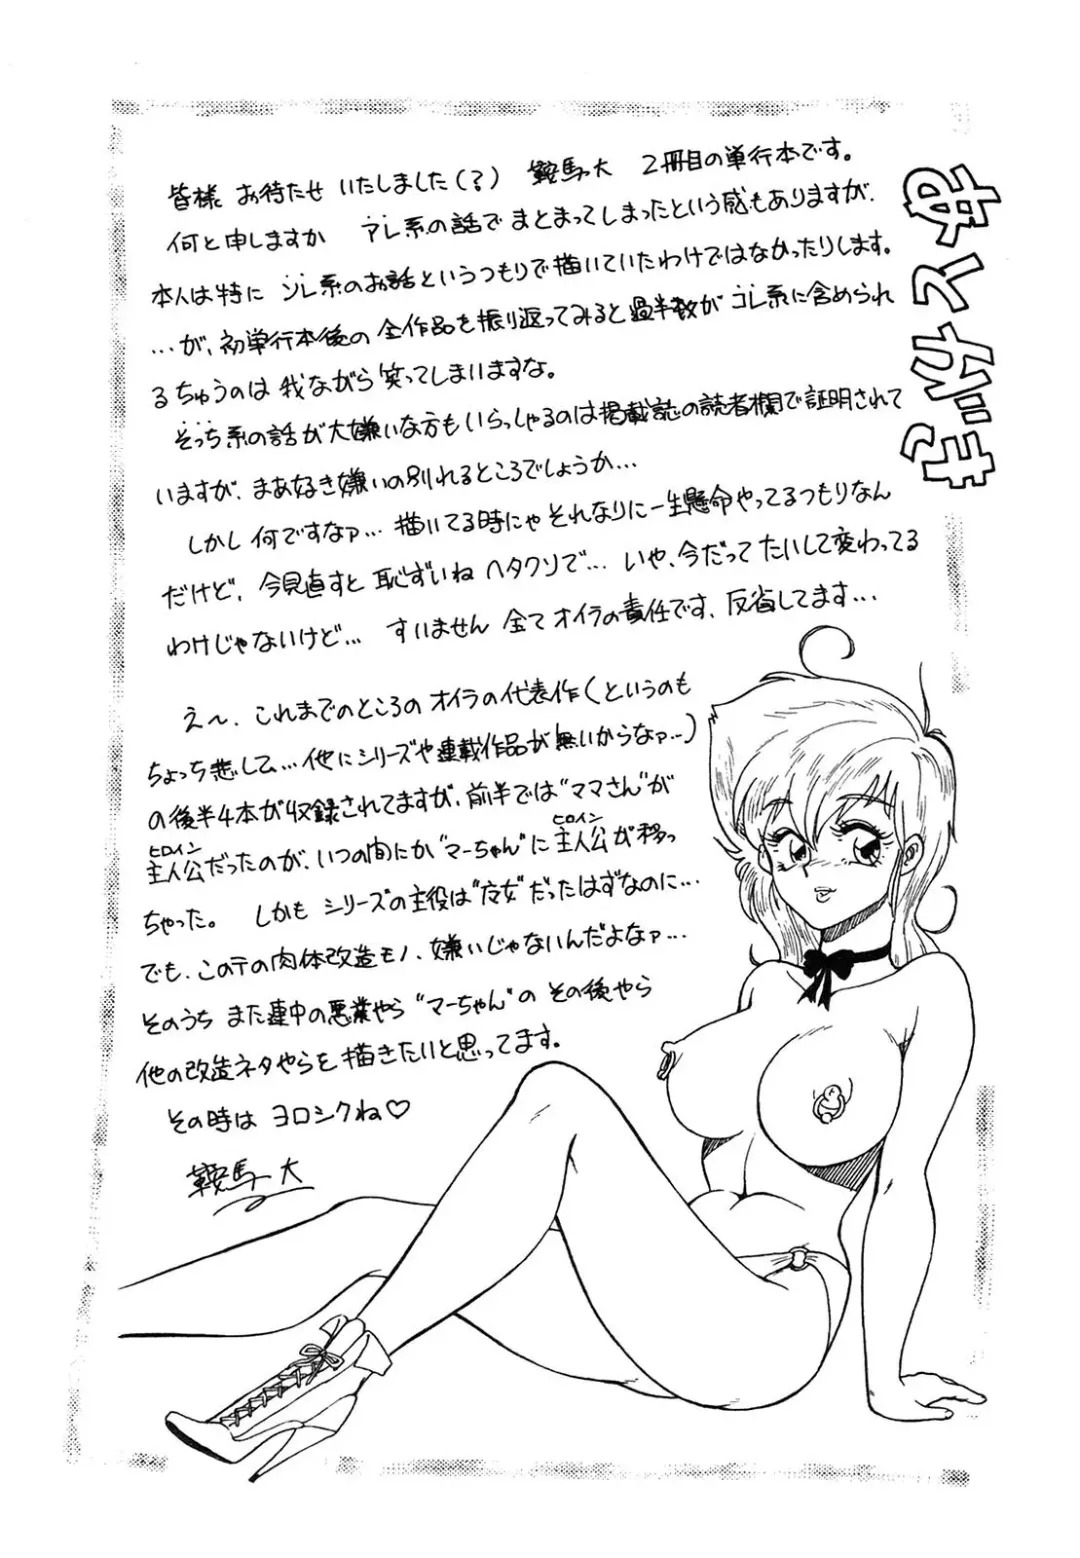 あとがき
皆様 お待たせ いたしました(?) 鞍馬大 2冊目の単行本です。
何と申しますか アレ系の話で まとまってしまったという感もありますが、
本人は特に ソレ系のお話というつもりで描いていたわけではなかったりします。
…が、初単行本後の 全作品を振り返ってみると過半数が コレ系に含められ
るちゅうのは 我ながら 笑ってしまいますな。
そっち系の話が大嫌いな方もいらっしゃるのは掲載誌の読者欄で証明されて
いますが、まあ好き嫌いの別れるところでしょうか…
しかし 何ですなァ… 描いてる時にゃ それなりに一生懸命やってるつもりなん
だけど、今見直すと 恥ずいね ヘタクソで… いや、今だって たいして変わってる
わけじゃないけど… すいません 全て オイラの責任です、反省してます…
え～、これまでのところの オイラの代表作(というのも
ちょっち悲して…他にシリーズや連載作品が無いからなァ…)
の後半4本が収録されてますが、前半では"ママさん"が
主人公だったのが、いつの間にか"マーちゃん"に 主人公が移っ
ヒロイン ヒロイン
ちゃった。 しかも シリーズの主役は だったはずなのに…
でも、このテの肉体改造モノ、嫌いじゃないんだよなァ…
そのうち また連中の悪業やら "マーちゃん"の その後やら
他の改造ネタやらを 描きたいと思ってます。
その時は ヨロシクね♡
鞍馬 大